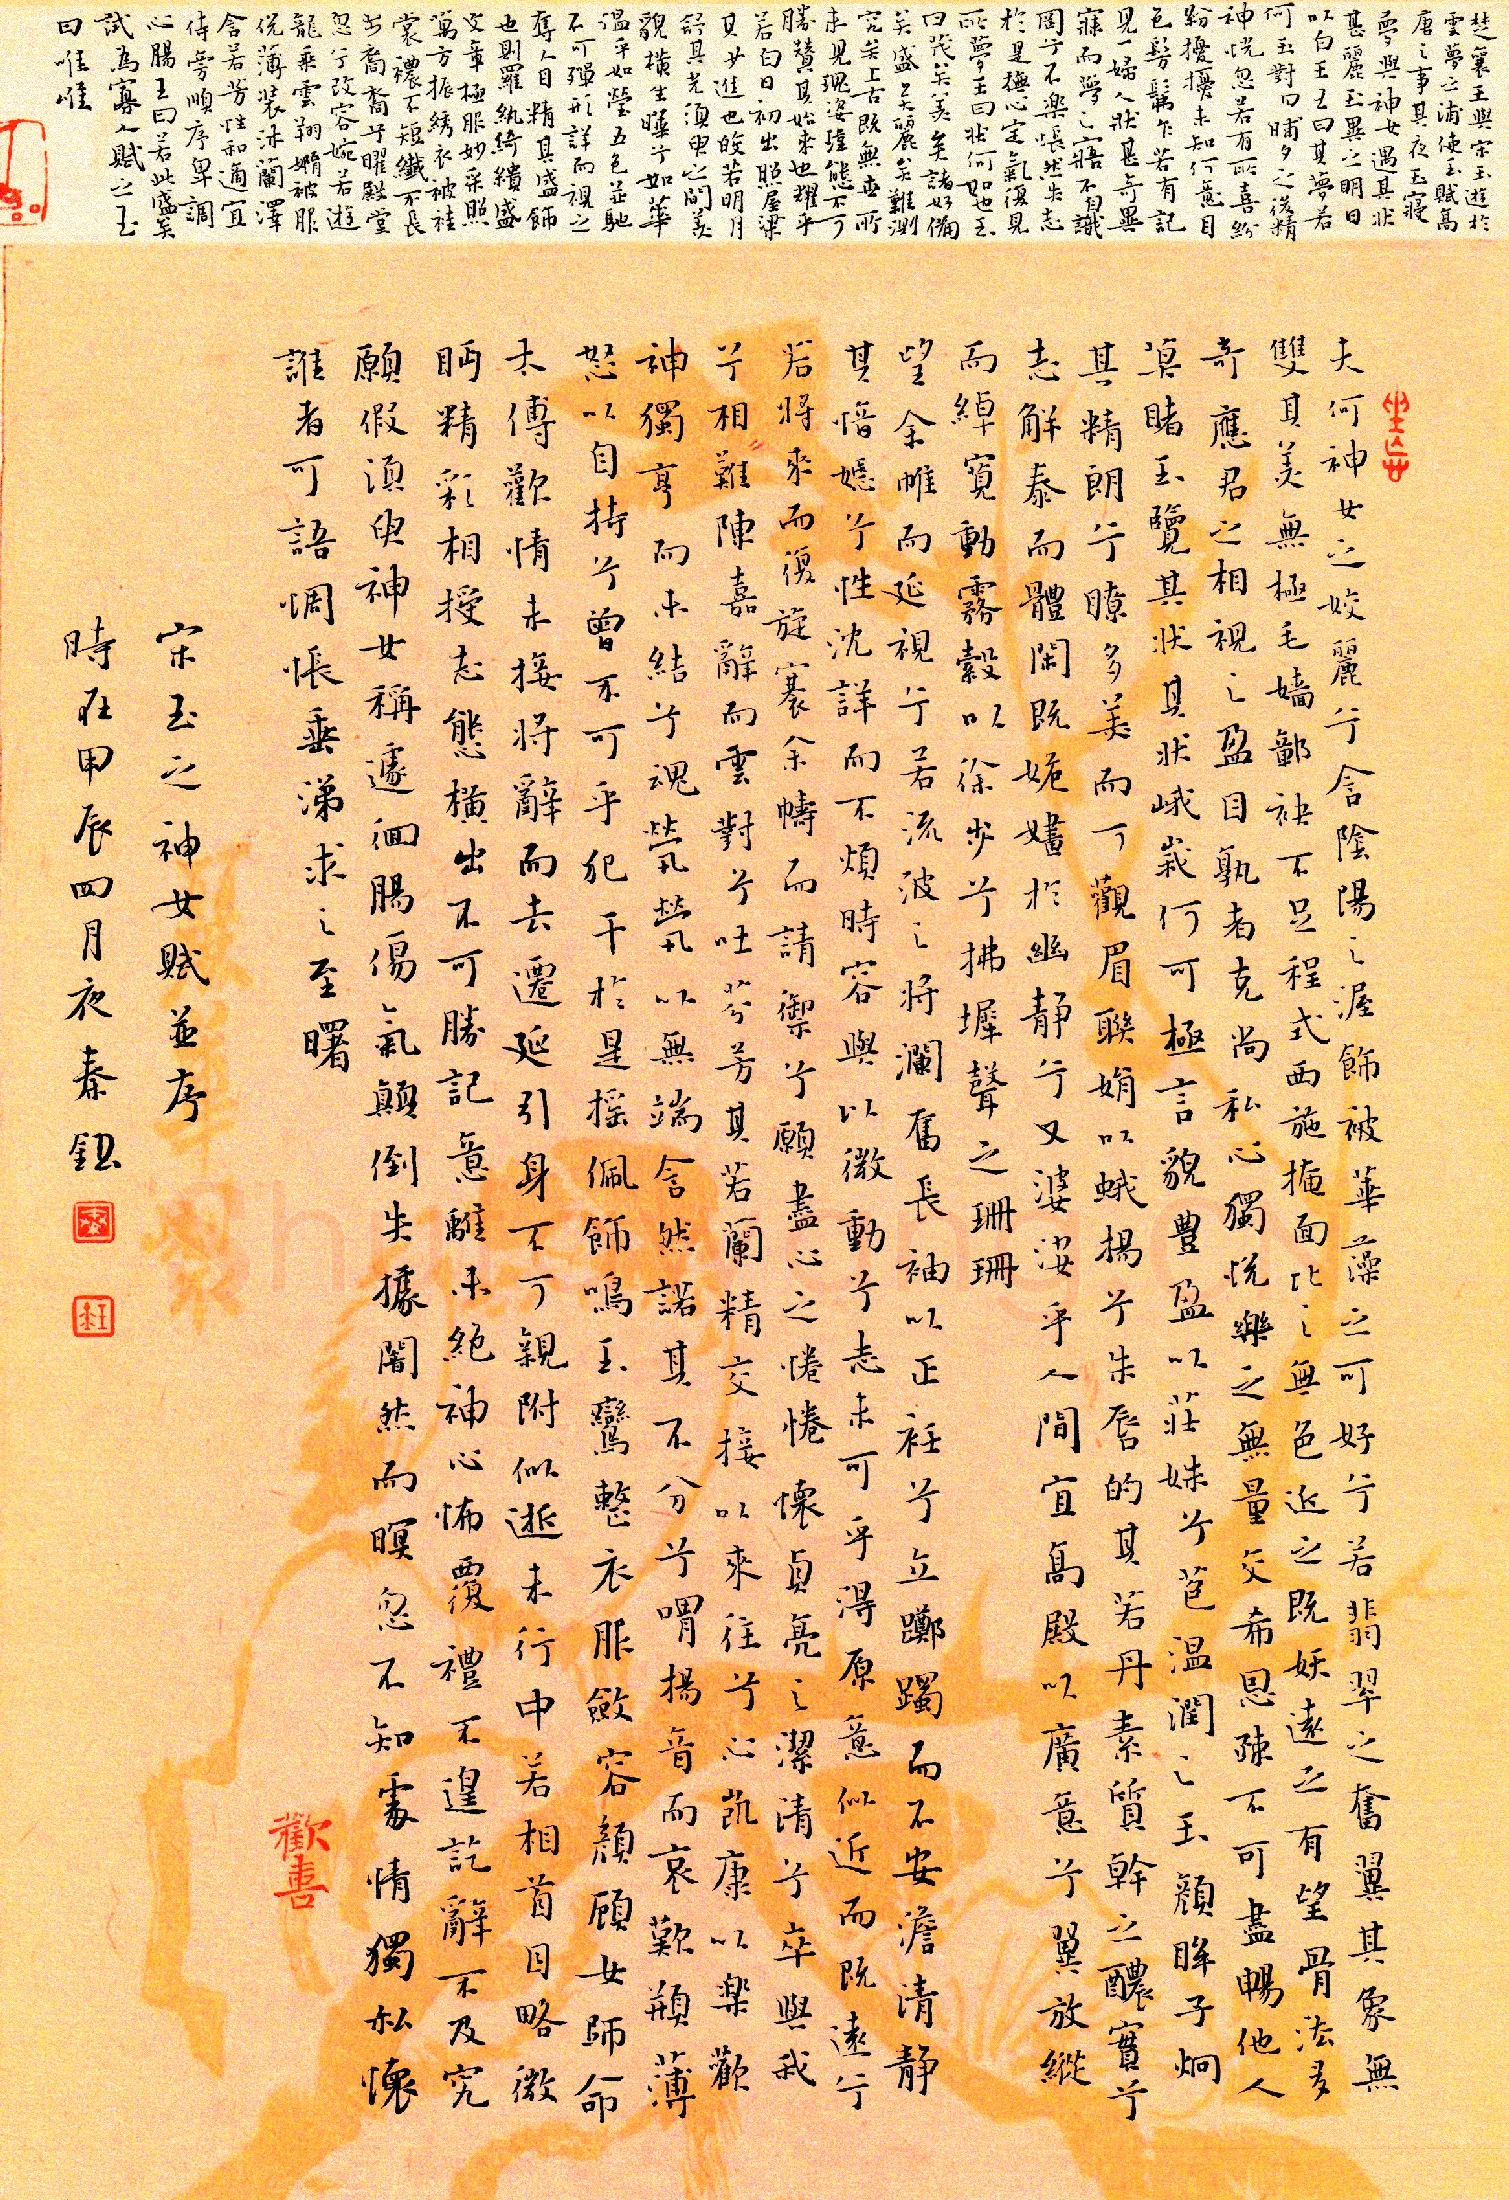 楚襄王與宋玉遊於
雲夢之浦使玉賦高
唐之事其夜玉寢
夢與神女遇其狀
甚麗玉異之明日
以白王王曰其夢若
何玉對曰晡夕之後精
神怳忽若有所喜紛
紛擾擾未知何意目
色髣髴乍若有記
見一婦人狀甚奇異
寐而夢之寤不自識
罔兮不樂悵然失志
於是撫心定氣復見
所夢王曰狀何如也玉
曰茂矣美矣諸好備
矣盛矣麗矣難測
究矣上古既無世所
未見瑰姿瑋態不可
勝贊其始來也耀乎
若白日初出照屋梁
其少進也皎若明月
舒其光須臾之間美
貌橫生曄兮如華
溫乎如瑩五色並馳
不可殫形詳而視之
奪人目精其盛飾
也則羅紈綺繢盛
文章極服妙采照
萬方振繡衣被袿
裳襛不短纖不長
步裔裔兮曜殿堂
忽兮改容婉若遊
龍乘雲翔嫷被服
侻薄裝沐蘭澤
含若芳性和適宜
侍旁順序卑調
心腸王曰若此盛矣
試為寡人賦之玉
曰唯唯
夫何神女之姣麗兮含陰陽之渥飾被華藻之可好兮若翡翠之奮翼其象無
雙其美無極毛嬙鄣袂不足程式西施掩面比之無色近之既妖遠之有望骨法多
奇應君之相視之盈目孰者克尚私心獨悅樂之無量交希恩疎不可盡暢他人
莫睹玉覽其狀其狀峨峨何可極言貌豐盈以莊姝兮苞溫潤之玉顏眸子炯
其精朗兮瞭多美而可觀眉聯娟以蛾揚兮朱唇的其若丹素質幹之醲實兮
志解泰而體閑既姽嫿於幽靜兮又婆娑乎人間宜高殿以廣意兮翼放縱
而綽寬動霧縠以徐步兮拂墀聲之珊珊
望余帷而延視兮若流波之將瀾奮長袖以正衽兮立躑躅而不安澹清靜
其愔嫕兮性沈詳而不煩時容與以微動兮志未可乎得原意似近而既遠兮
若將來而復旋褰余幬而請御兮願盡心之惓惓懷貞亮之潔清兮卒與我
兮相難陳嘉辭而雲對兮吐芬芳其若蘭精交接以來往兮心凱康以樂歡
神獨亨而未結兮魂煢煢以無端含然諾其不分兮喟揚音而哀歎頩薄
怒以自持兮曾不可乎犯干於是搖佩飾鳴玉鸞整衣服斂容顏顧女師命
太傅歡情未接將辭而去遷延引身不可親附似逝未行中若相首目略微
眄精彩相授志態橫出不可勝記意離未絕神心怖覆禮不遑訖辭不及究
願假須臾神女稱遽徊腸傷氣顛倒失據闇然而暝忽不知處情獨私懷
誰者可語惆悵垂涕求之至曙
宋玉之神女賦並序
時在甲辰四月夜秦鈕
歡喜